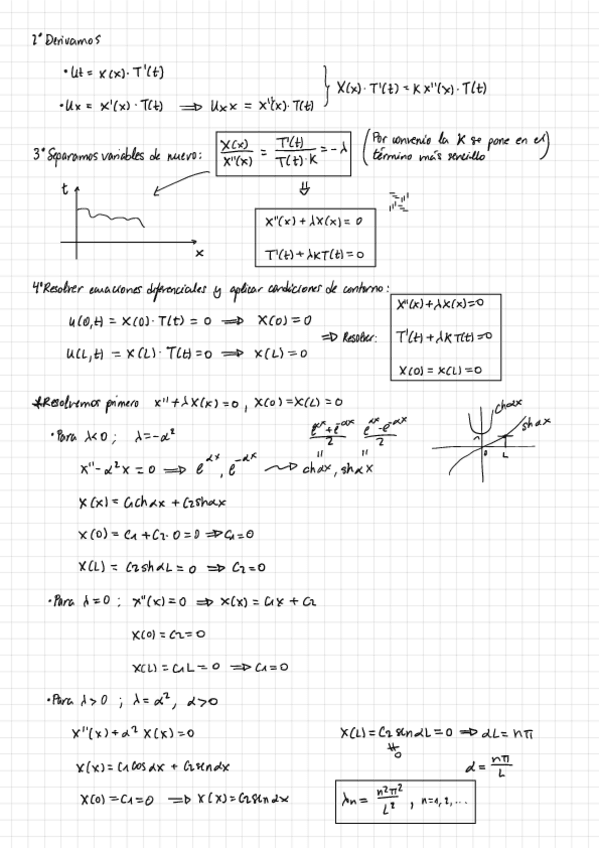 2º Derivamos
• Ut = X(x)· T'(t)
• Ux = X'(x)· T(t) ⟹ Uxx = X''(x)· T(t) } X(x)· T'(t) = K X''(x)· T(t)
3º Separamos variables de nuevo: X(x)/X''(x) = T'(t)/(T(t)·K) = -λ (Por convenio la K se pone en el
término más sencillo)
t
x
⇓
X''(x) + λX(x) = 0
T'(t) + λKT(t) = 0
4º Resolver ecuaciones diferenciales y aplicar condiciones de contorno:
u(0,t) = X(0)· T(t) = 0 ⟹ X(0) = 0
u(L,t) = X(L)· T(t) = 0 ⟹ X(L) = 0
⟹ Resolver:
X''(x) + λX(x) = 0
T'(t) + λKT(t) = 0
X(0) = X(L) = 0
*Resolvemos primero X'' + λX(x) = 0, X(0) = X(L) = 0
• Para λ<0 ; λ = -α²
(e^αx + e^-αx)/2 (e^αx - e^-αx)/2
X'' - α²X = 0 ⟹ e^αx, e^-αx ⟿ chαx, shαx
chαx
shαx
0
L
X(x) = C1chαx + C2shαx
X(0) = C1 + C2·0 = 0 ⟹ C1 = 0
X(L) = C2shαL = 0 ⟹ C2 = 0
• Para λ = 0 ; X''(x) = 0 ⟹ X(x) = C1x + C2
X(0) = C2 = 0
X(L) = C1L = 0 ⟹ C1 = 0
• Para λ > 0 ; λ = α², α>0
X''(x) + α² X(x) = 0
X(x) = C1cosαx + C2senαx
X(0) = C1 = 0 ⟹ X(x) = C2senαx
X(L) = C2 senαL = 0 ⟹ αL = nπ
≠0
α = nπ/L
λn = n²π²/L² , n=1, 2, ...